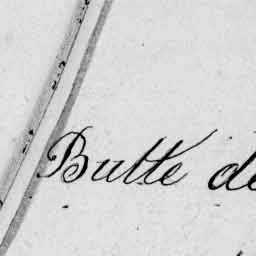 Butte de